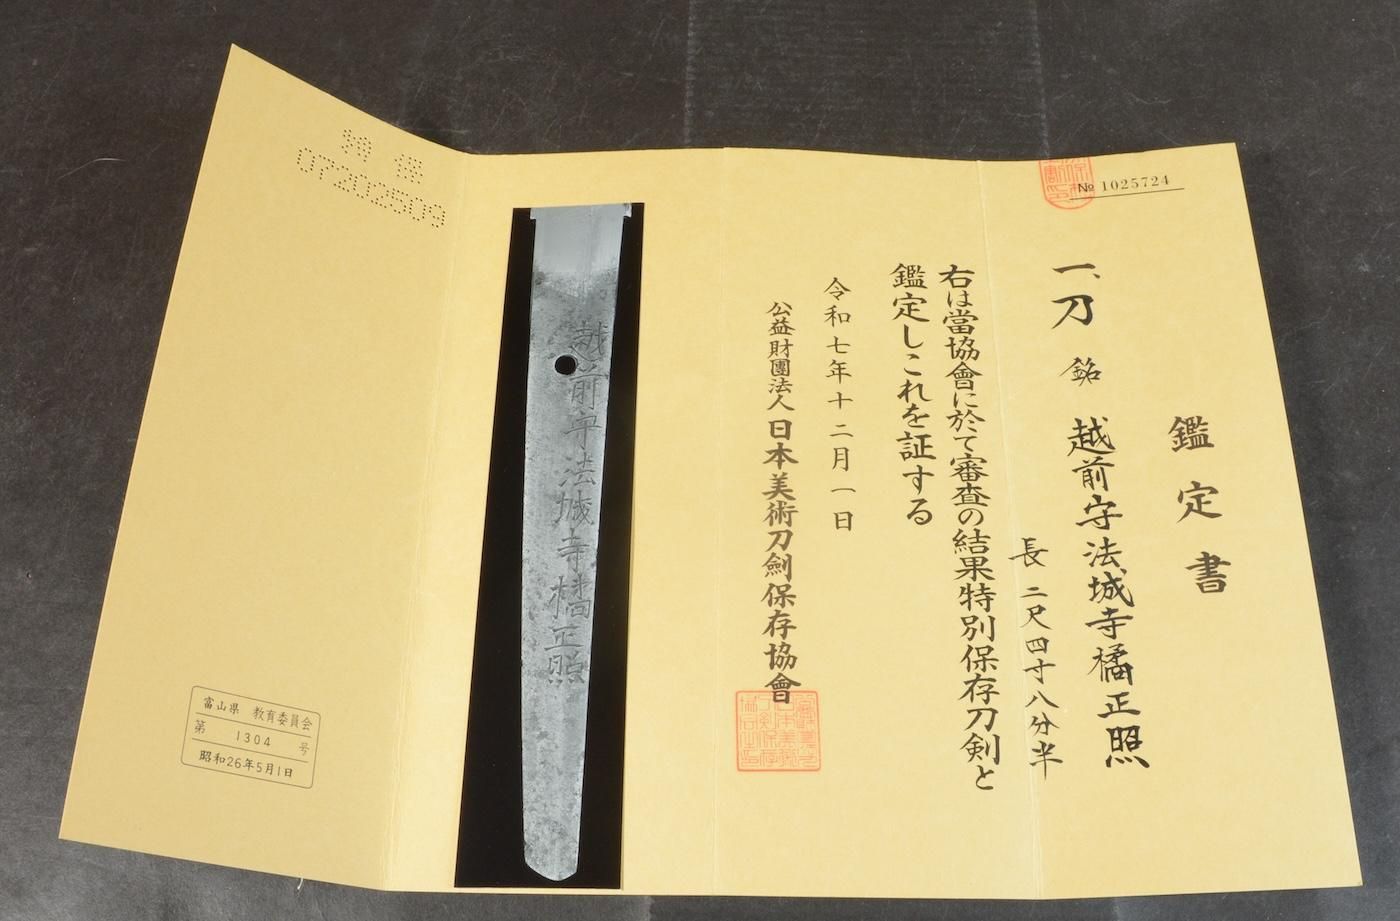 № 1025724
鑑定書
一、刀 銘 越前守法城寺橘正照
長 二尺四寸八分半
右は當協會に於て審査の結果特別保存刀剣と
鑑定しこれを証する
令和七年十二月一日
公益財團法人 日本美術刀劍保存協會
越前守法城寺橘正照
特保
07202509
富山県 教育委員会
第 1304 号
昭和26年5月1日